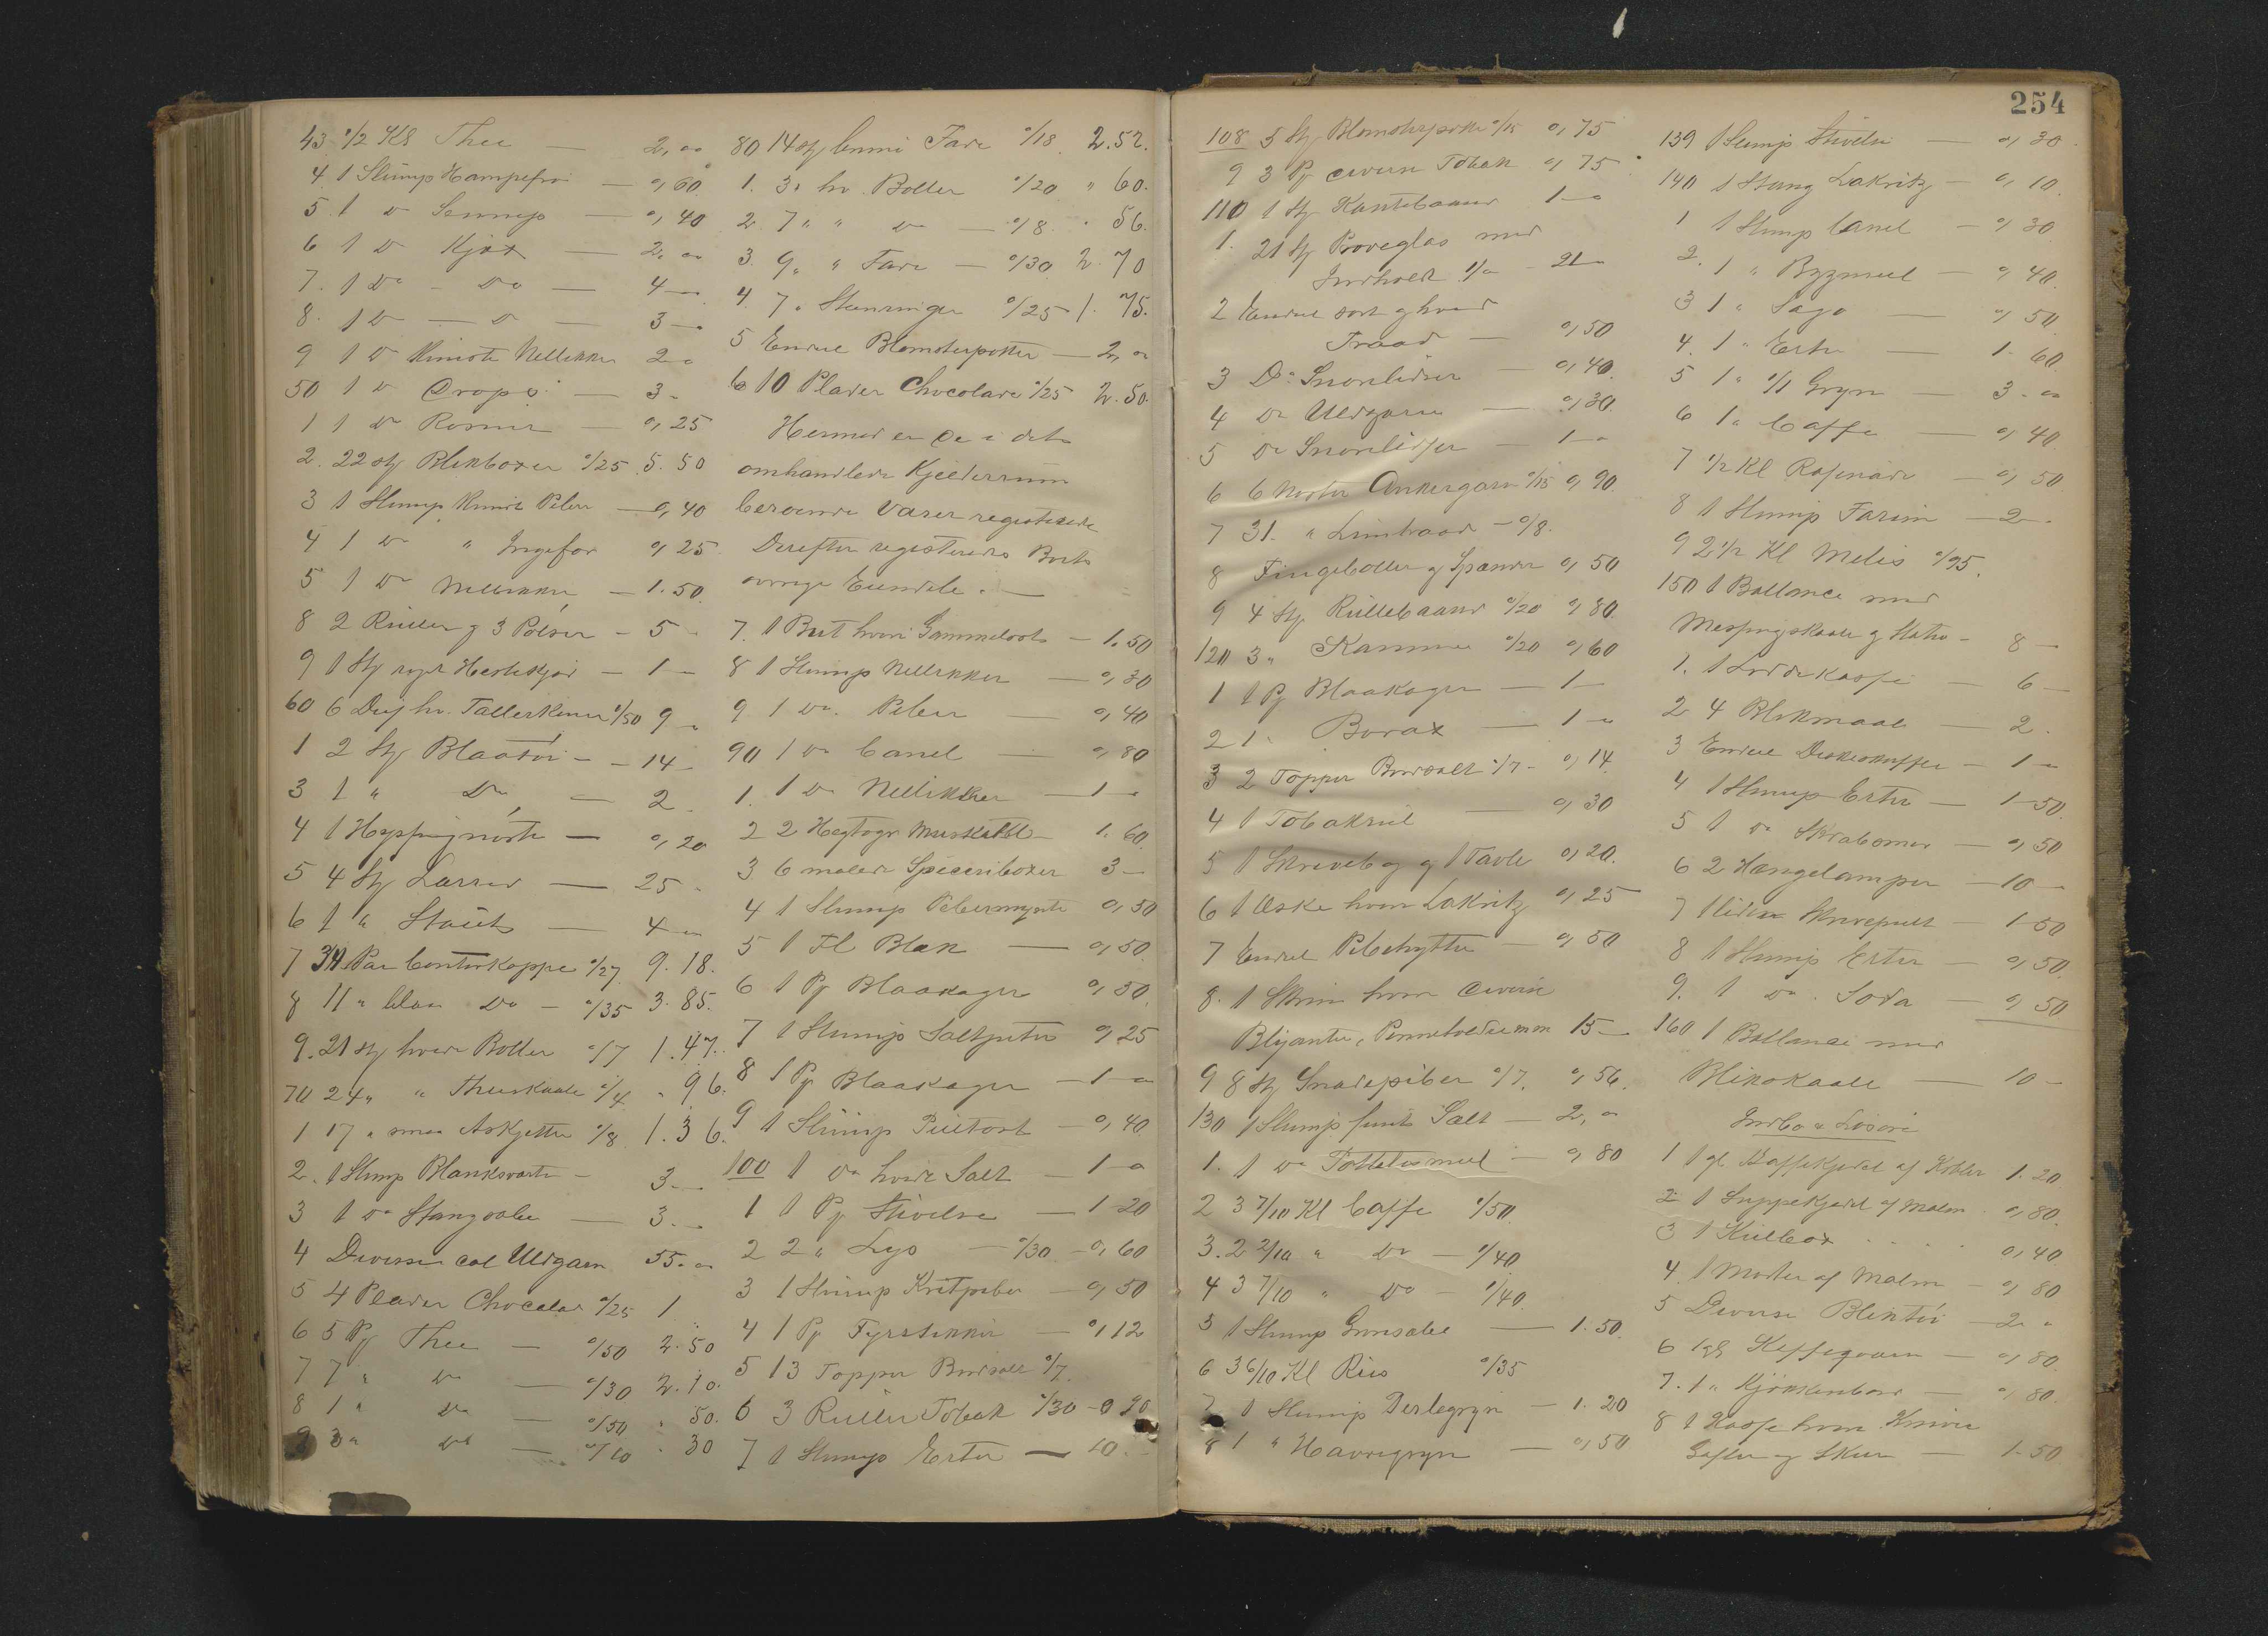 43 ½ Kl Thee — 2,00
4 1 Slump Hampefrø — 0,60
5. 1 Do Sennep — 0,40
6 1 Do Kjæx — 2,00
7. 1 Do - Do — 4 —
8. 1 D — D — 3 —
9 1 Do Nellikker 2 —
50 1 Do Drops — 3 —
1 1 Do Rosiner — 0,25
2. 22 stk Blikboxer 0/25 5.50
3 1 Slump Peber — 0,40
4 1 Do " Ingefær 0,25
5 1 Do Nellikker — 1.50
8 2 Ruller og 3 Pølser — 5 —
9 1 Stk — 1 —
60 6 Dusj hv. Tallerkener 1/50 9 —
1 2 Stk Blaatøi — 14 —
3 1 " Do — 2 —
4 1 — 0,20
5 4 Stk Lærred — 25 —
6 1 " Stouts — 4 —
7 34 Par Contorkoppe 0/27 9.18.
8 11 " blaa Do — 0/35 3.85.
9. 21 stk hvide Boller 0/7 1.47.
70 24 " " Theeskaale 0/4 " 96.
1 17 " smaa Askjetter 0/8 1.36.
2. 1 Slump Blanksværte — 3 —
3 1 Do Stangsæbe — 3 —
4 Diverse col Uldgarn 55.00
5 4 Plader Chocolade 0/25 1
6 5 Pk Thee — 0/50 2.50
7 7 " Do — 0/30 2.10.
8 1 " Do — 0/50 " 50.
9 3 " Do — 0/10 " 30
80 14 stk Fade 0/18 2.52.
1. 3 " hv. Boller 0/20 " 60.
2. 7 " " Do — 0/8 " 56.
3. 9 " " Fade — 0/30 2.70
4 7 " 0/25 1.75.
5 Endeel Blomsterpotter — 2,00
6 10 Plader Chocolade 0/25 2.50.
Hermed er de i det
omhandlede Kjelderrum
beroende Varer registerede
Derefter registeredes Boets
øvrige Eiendele. —
7. 1 Butt hvori Gammelost — 1.50
8 1 Slump Nellikker — 0,30
9 1 Do. Peber — 0,40
90 1 Do Canel — 0,80
1. 1 Do Nellikker — 1 —
2 2 Hegtogr Muskatbl — 1.60
3 6 malede Speceriboxer 3 —
4 1 Slump Pebermynte 0,50
5 1 Fl Blæk — 0,50
6 1 Pk Blaakager 0,50
7 1 Slump Saltpeter 0,25
8 1 Pk Blaakager — 1 —
9 1 Slump Pultost — 0,40
100 1 Do hvidt Salt — 1 —
1 1 Pk Stivelse — 1 20
2 2 " Lys — 0/30 — 0,60
3 1 Slump Kritpiber — 0,50
4 1 Pk Fyrstikker — 0,12
5 13 Topper Bordsalt 0/7
6 3 Ruller Tobak 0/30 — 0 90
7 1 Slump Erter — 10 —
254
108 5 Stk Blomsterpotter 0/15 0,75
9 3 Pk diverse Tobak 0,75
110 1 Stk Kantebaand 1 —
1. 21 Stk Prøveglas med
Indhold 1/00 — 21 —
2 Endeel sort og hvid
Traad — 0,50
3 Do Snorelidser — 0,40
4 Do Uldgarn — 0,30
5 Do Snorelidser — 1 —
6 6 Nøster Ankergarn 0/15 0,90
7 31. " — 0/8.
8 Fingebøller og Spænder 0,50
9 4 Stk Rullebaand 0/20 0,80
120 3 " Kamme 0/20 0,60
1 1 Pk Blaakager — 1 —
2 1 " Borax — 1 —
3 2 Topper Bordsalt 0/7 — 0,14
4 1 Tobakrul — 0,30
5 1 Skrivebog og 1 Tavle 0,20.
6 1 Æske hvori Lakritz 0,25
7 Endeel Pibehytter — 0,50
8. 1 Skrin hvori diverse
Blyanter, Penneholdere m m 15 —
9 8 Stk Snadepiber 0/7. 0,56.
130 1 Slump fint Salt — 2,00
1. 1 Do Pottetesmeel — 0,80
2 3 7/10 Kl Caffe 1/50
3. 2 2/10 " Do — 1/40
4 3 7/10 " Do — 1/40.
5 1 Slump Grønsæbe — 1.50
6 3 6/10 Kl Riis 0/35
7 1 Slump Perlegryn — 1.20
8 1 " Havregryn — 0,50
139 1 Slump Stivelse — 0,30
140 1 Stang Lakritz — 0,10.
1 1 Slump Canel — 0,30
2. 1 " Bygmeel — 0,40.
3 1 " Sago — 0,50.
4. 1 " Erter — 1.60
5 1 " Gryn — 3.00
6 1 " Caffe — 0,40
7 ½ Kl Rafinade — 0,50
8 1 Slump Farin — 2 —
9 2½ Kl Melis 0/95.
150 1 Ballance med
Messingskaale og Stativ — 8 —
1. 1 Loddekasse — 6 —
2 4 Blikmaal — 2.
3 Endeel Diskeskuffer — 1 —
4 1 Slump Erter — 1 50
5 1 Do — 0,50
6 2 Hængelamper — 10 —
7 1 liden Skrivepult — 1 50
8 1 Slump Erter — 0,50
9. 1 Do. Soda — 0,50
160 1 Ballance med
Blikskaale — 10 —
Indbo & Løsøre
1 1 gl Kaffekjedel af Kobber 1.20
2 1 Suppekjedel af Malm. 0,80.
3 1 Kulbox 0,40
4. 1 Morter af Malm — 0,80
5 Diverse Bliktøi — 2 —
6 1 gl Kaffeqværn — 0,80
7. 1 " Kjøkkenbord — 0,80.
8 1 Kasse hvori Knive
Gafler og Skeer — 1.50